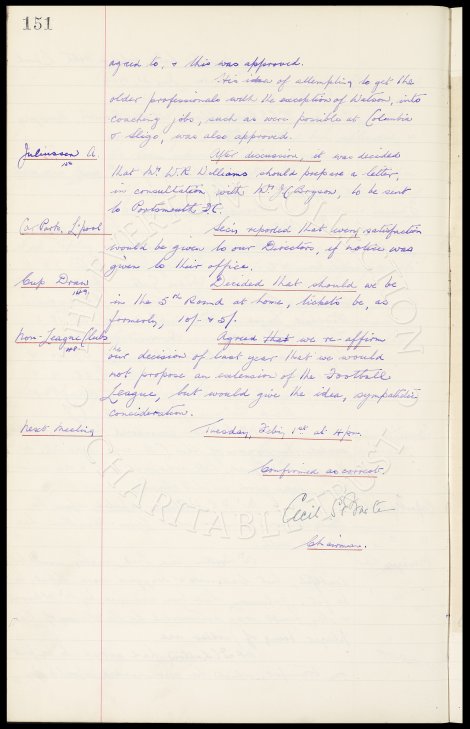 151
agreed to, & this was approved.
His idea of attempting to get the
older professionals with the exception of Watson, into
coaching jobs, such as were possible at Columbia
& Sligo, was also approved.
Juliussen A. After discussion, it was decided
that Mr W.R. Williams should prepare a letter,
in consultation with Mr , to be sent
to Portsmouth F.C.
Car Park, L'pool Secy. reported that every satisfaction
would be given to our Directors, if notice was
given to their office.
Cup Draw Decided that should we be
in the 5th Round at home, tickets be, as
formerly, 10/- & 5/-
Non-League Clubs Agreed that we re-affirm
our decision of last year that we would
not propose an extension of the Football
League, but would give the idea, sympathetic
consideration.
Next Meeting Tuesday, Feby. 1st at 4pm.
Confirmed as correct.
Cecil S. Baxter
Chairman.
CHARITABLE TRUST